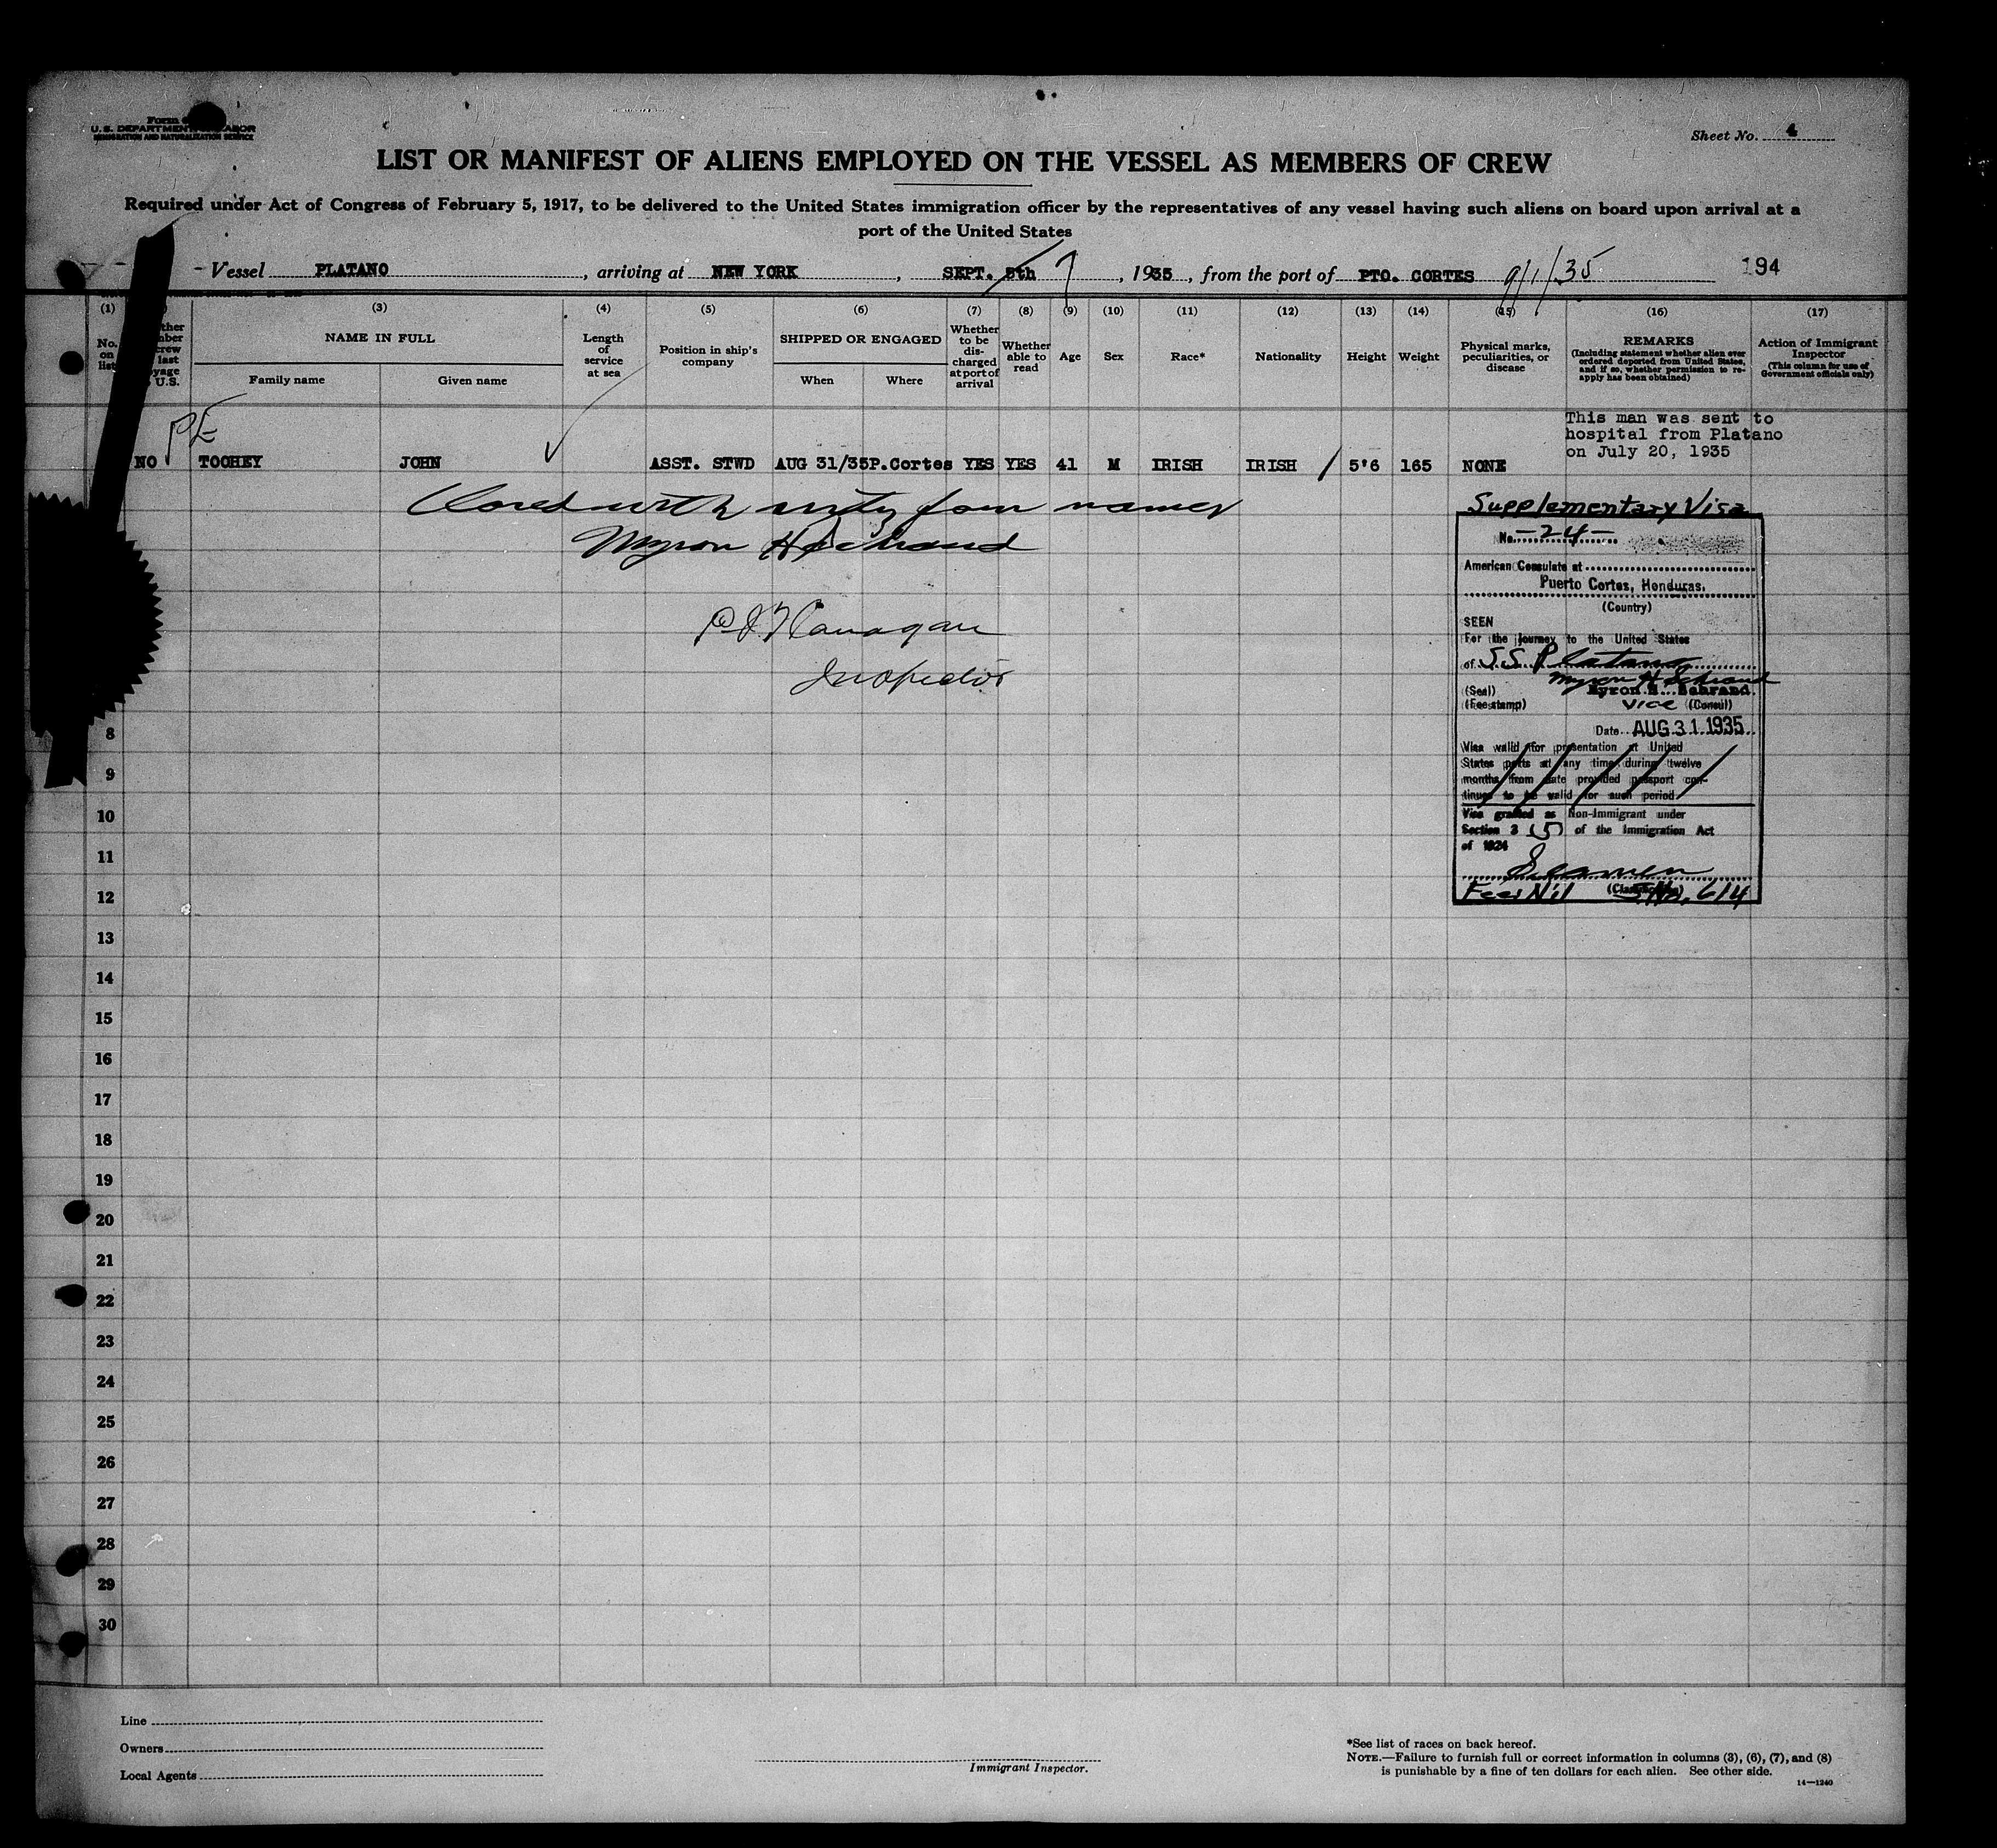 Form
U. S. DEPARTMENT LABOR
IMMIGRATION AND NATURALIZATION SERVICE
Sheet No. 4
LIST OR MANIFEST OF ALIENS EMPLOYED ON THE VESSEL AS MEMBERS OF CREW
Required under Act of Congress of February 5, 1917, to be delivered to the United States immigration officer by the representatives of any vessel having such aliens on board upon arrival at a
port of the United States
Vessel PLATANO, arriving at NEW YORK, SEPT. 5th 7, 1935, from the port of PTO. CORTES 9/1/35
194
(1) (3) (4) (5) (6) (7) (8) (9) (10) (11) (12) (13) (14) (15) (16) (17)
No. on list
NAME IN FULL
Family name
Given name
Length of service at sea
Position in ship's company
SHIPPED OR ENGAGED
When
Where
Whether to be discharged at port of arrival
Whether able to read
Age
Sex
Race*
Nationality
Height
Weight
Physical marks, peculiarities, or disease
REMARKS
(Including statement whether alien ever ordered deported from United States, and if so, whether permission to reapply has been obtained)
Action of Immigrant Inspector
(This column for use of Government officials only)
This man was sent to
hospital from Platano
on July 20, 1935
PE
NO TOOHEY JOHN ASST. STWD AUG 31/35 P.Cortes YES YES 41 M IRISH IRISH 5'6 165 NONE
Closed with sixty four names
Myron H Schrand
P J Flanagan
Inspector
Supplementary Visa
No. -24-
American Consulate at
Puerto Cortes, Honduras.
(Country)
SEEN
For the journey to the United States
of S.S. Platano
Myron H Schrand
(Seal) Myron H. Schrand.
(Fee stamp) Vice (Consul)
Date AUG 31 1935
Visa valid for presentation at United
States ports at any time during twelve
months from date provided passport con-
tinues to be valid for such period
Visa granted as Non-Immigrant under
Section 3 (5) of the Immigration Act
of 1924
Seamen
(Classification)
Fee: Nil 614
8
9
10
11
12
13
14
15
16
17
18
19
20
21
22
23
24
25
26
27
28
29
30
Line
Owners
Local Agents
Immigrant Inspector.
*See list of races on back hereof.
NOTE.—Failure to furnish full or correct information in columns (3), (6), (7), and (8)
is punishable by a fine of ten dollars for each alien. See other side.
14—1240